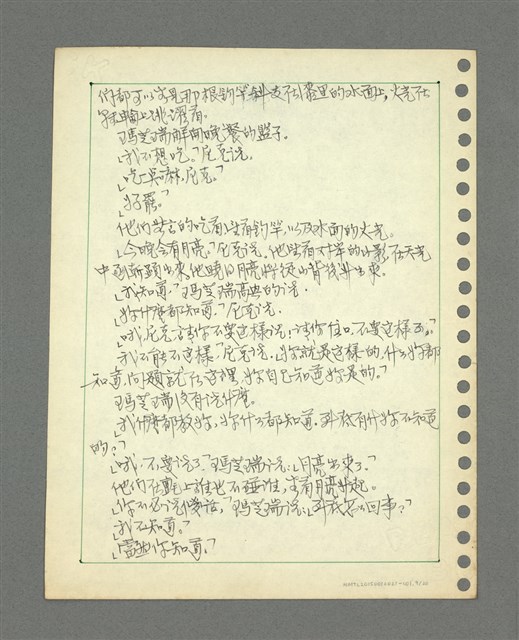 們都可以看見那根釣竿斜支在暗黑的水面上，火光在
軸上跳躍着。
瑪芝瑞解開晚餐的籃子。
「我不想吃。」尼克說。
「吃一點嘛，尼克。」
「好罷。」
他們無言的吃着，注看釣竿，以及水面的火光。
「今晚會有月亮，」尼克說。他望着對岸的小影在天光
中逐漸顯出來，他曉得月亮將從山背後昇出來。
「我知道，」瑪芝瑞高興的說。
「妳什麼都知道，」尼克說。
「哦，尼克，請你不要這樣說！請你住口，不要這樣了。」
「我不能不這樣，」尼克說。「妳就是這樣的，什么妳都
知道，問題就在這裡，妳自己知道妳是的。」
瑪芝瑞沒有說什麼。
「我什麼都教妳，妳什么都知道。到底有什妳不知道
的？」
「哦，不要說了，」瑪芝瑞說：「月亮出來了。」
他們在毯上誰也不碰誰，看着月亮昇起。
「你不必說傻話，」瑪芝瑞說：「到底怎么回事？」
「我不知道。」
「當然你知道。」